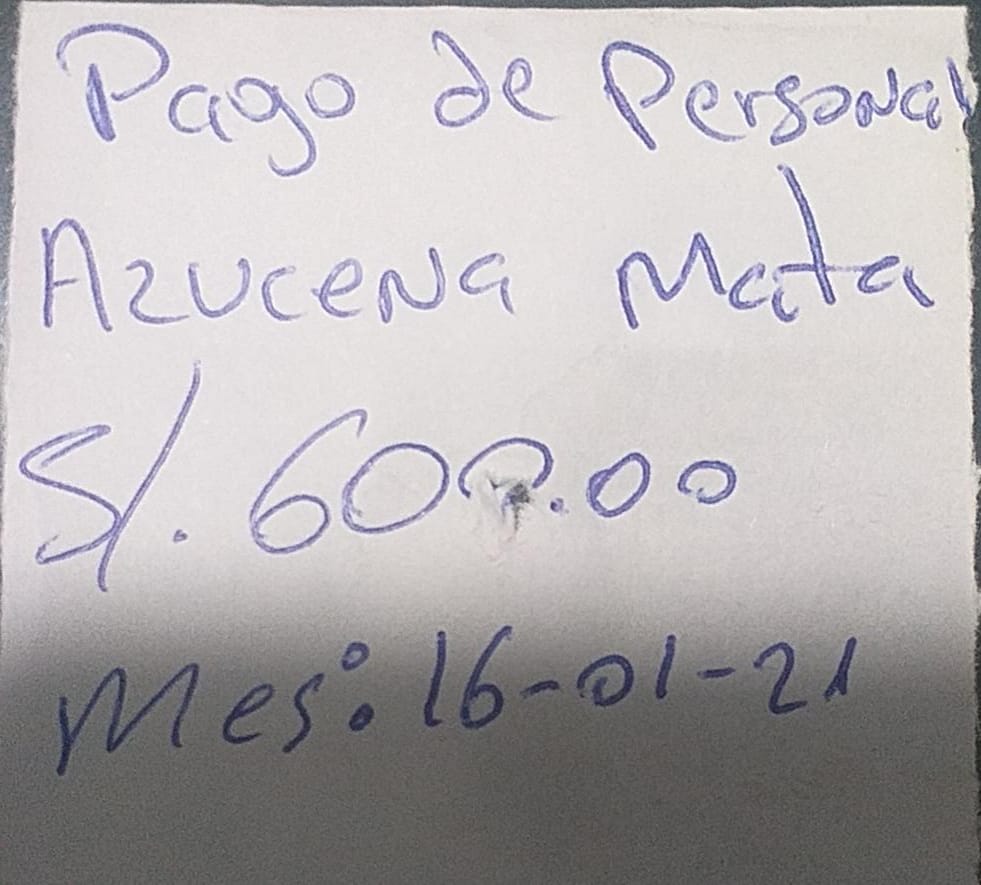 Pago de Personal
Azucena Mata
S/. 600.00
Mes: 16-01-21